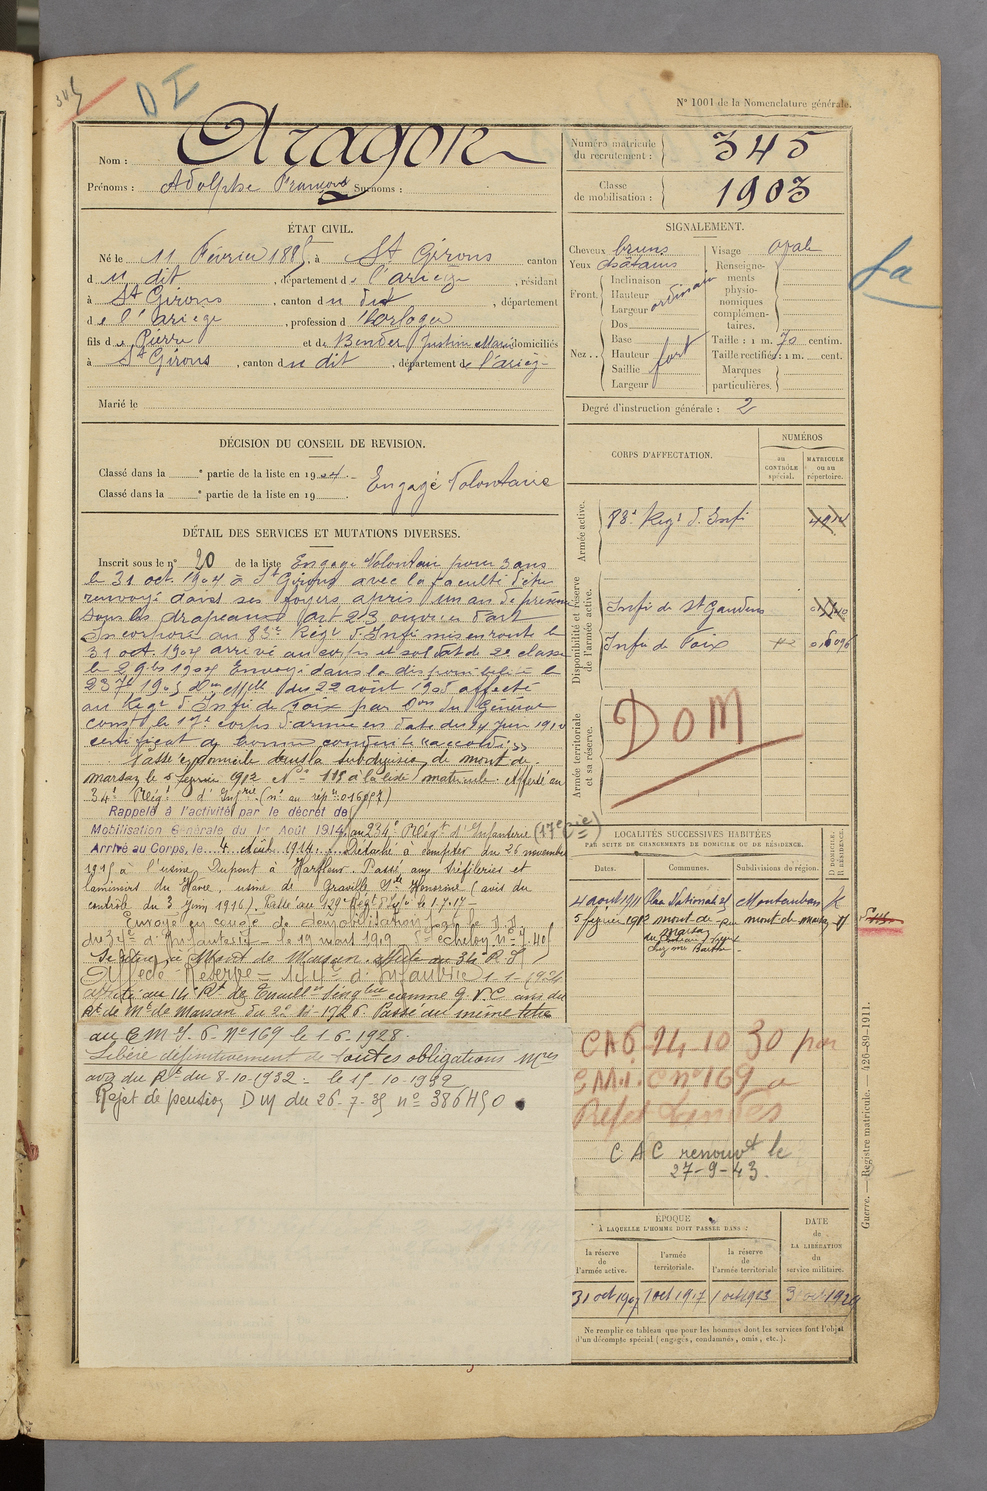 345
DI
N° 1001 de la Nomenclature générale.
Nom : Aragon
Prénoms : Adolphe François Surnoms :
Numéro matricule du recrutement : 345
Classe de mobilisation : 1903
ÉTAT CIVIL.
Né le 11 Février 1885, à St Girons canton
d u dit, département d e l'ariège, résidant
à St Girons, canton d u dit, département
d e l'ariege, profession d'horloger
fils de Pierre et de Bender Justine Marie domiciliés
à St Girons, canton du dit, département de l'ariège
Marié le
SIGNALEMENT.
Cheveux bruns
Yeux chatains
Front. Inclinaison
Hauteur ordinaire
Largeur
Nez.. Dos
Base
Hauteur fort
Saillie
Largeur
Visage ovale
Renseignements physionomiques complémentaires.
Taille : 1 m. 70 centim.
Taille rectifiée : 1 m. cent.
Marques particulières.
Degré d'instruction générale : 2
La
DÉCISION DU CONSEIL DE REVISION.
Classé dans la e partie de la liste en 1904. Engagé Volontaire
Classé dans la e partie de la liste en 19
CORPS D'AFFECTATION.
NUMÉROS
au CONTRÔLE spécial.
MATRICULE ou au répertoire.
Armée active.
83e Regt d'Infie
Disponibilité et réserve de l'armée active.
Infie de St Gaudens
Infie de Foix
Armée territoriale et sa réserve.
DOM
DÉTAIL DES SERVICES ET MUTATIONS DIVERSES.
Inscrit sous le n° 20 de la liste Engagé Volontaire pour 3 ans
le 31 oct. 1904 à St Girons avec la faculté d'être
renvoyé dans ses foyers après un an de présence
sous les drapeaux art 23 ouvrier d'art
Incorporé au 83e Regt d'Infie mis en route le
31 oct 1904 arrivé au corps et soldat de 2e classe
le 2 9bre 1904 Envoyé dans la disponibilité le
23 7bre 1905 Don Melle du 22 août 1905 affecté
au Regt d'Infie de Foix par Don du Général
Comdt le 17e corps d'armée en date du 14 Juin 1910
certificat de bonne conduite "accordé"
Passé domicile dans la subdivision de mont de
marsan le 5 février 1912 N° 118 à la liste matricule. Affecté au
34e Régt d'Infrie (n° au rép. 016093)
Rappelé à l'activité par le décret de
Mobilisation Générale du 1er Août 1914, au 234e Régt d'Infanterie (17e Cie)
Arrivé au Corps, le 4 Août 1914. Détaché à compter du 26 novembre
1915 à l'usine Dupont à Harfleur. Passé aux tréfileries et
laminoirs du Havre, usine de Graville Ste Honorine (avis du
contrôle du 3 Juin 1916). Passé au 129e Régt d'Infie le 1.7.17
Envoyé en congé de démobilisation
du 34e d'Infanterie le 19 mars 1919 5e échelon n° 7.401
Se retire à Mont de Marsan affecté au 34e R.I.
Affecté Réserve 1-1-1924
Affecté au 14e Rt de
Rt de Mt de Marsan Passé au même titre
au C M I. 6. N° 169 le 1.6.1928.
Libéré définitivement de toutes obligations mres
avis du Rt du 8-10-1932 = le 15.10-1932
Rejet de pension DM du 26-7-35 n° 386450
LOCALITÉS SUCCESSIVES HABITÉES
PAR SUITE DE CHANGEMENTS DE DOMICILE OU DE RÉSIDENCE.
Dates. Communes. Subdivisions de région. D DOMICILE. R RÉSIDENCE.
4 août 1911 Place Nationale 25 Montauban R
5 février 1912 mont de marsan mont de marsan
CAC 24 10 30 par
CMI. C n° 169 a
Préfet Landes
C A C renouvt le
27-9-43.
ÉPOQUE
À LAQUELLE L'HOMME DOIT PASSER DANS :
la réserve de l'armée active.
l'armée territoriale.
la réserve de l'armée territoriale
DATE de LA LIBÉRATION du service militaire.
31 oct 1907 1 oct 1917 1 oct 1923 3 oct 1929
Ne remplir ce tableau que pour les hommes dont les services font l'objet
d'un décompte spécial (engagés, condamnés, omis, etc.).
Guerre. — Registre matricule. — 426-89-1911.